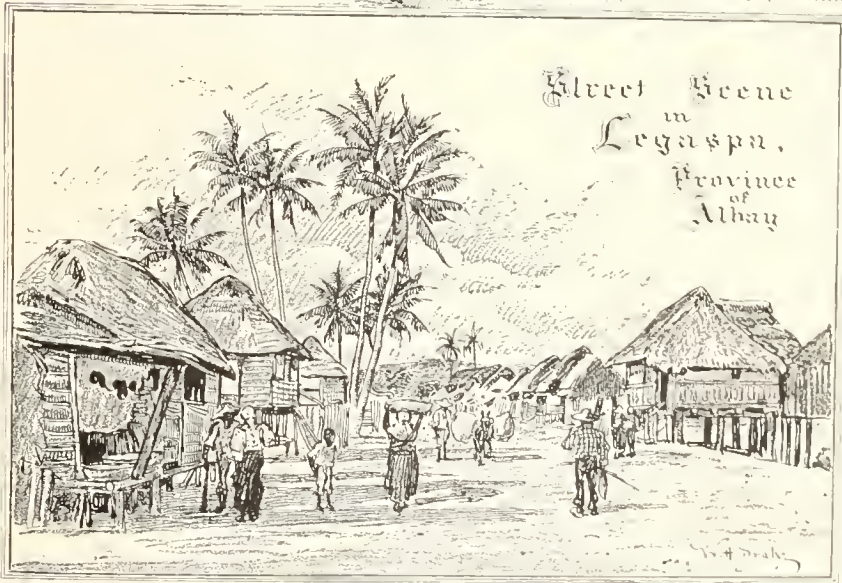 Street Scene
in
Legaspa,
Province
of
Albay
W. H. Drake